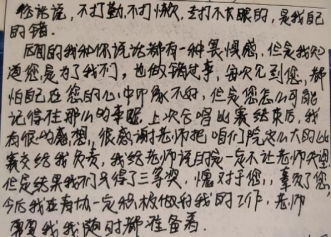 你说说，不打勤，不打懒，专打不长眼的，是我自己
的错。
因而我和你说话都有一种畏惧感，但是我知
道您是为了我们，也做错过事，每次见到您，都
怕自己在您的心中印象不好，但是您怎么可能
记得住那么的事呢，上次合唱比赛结束后，我
有很多感想，很感谢老师把咱们院这么大的比
赛交给我负责，我给老师说自己一定不让老师失望
但是结果我们只得了三等奖，愧对于您，辜负了您，
今后我在有协一定积极做好我的工作，老师
需要我我随时都准备着。